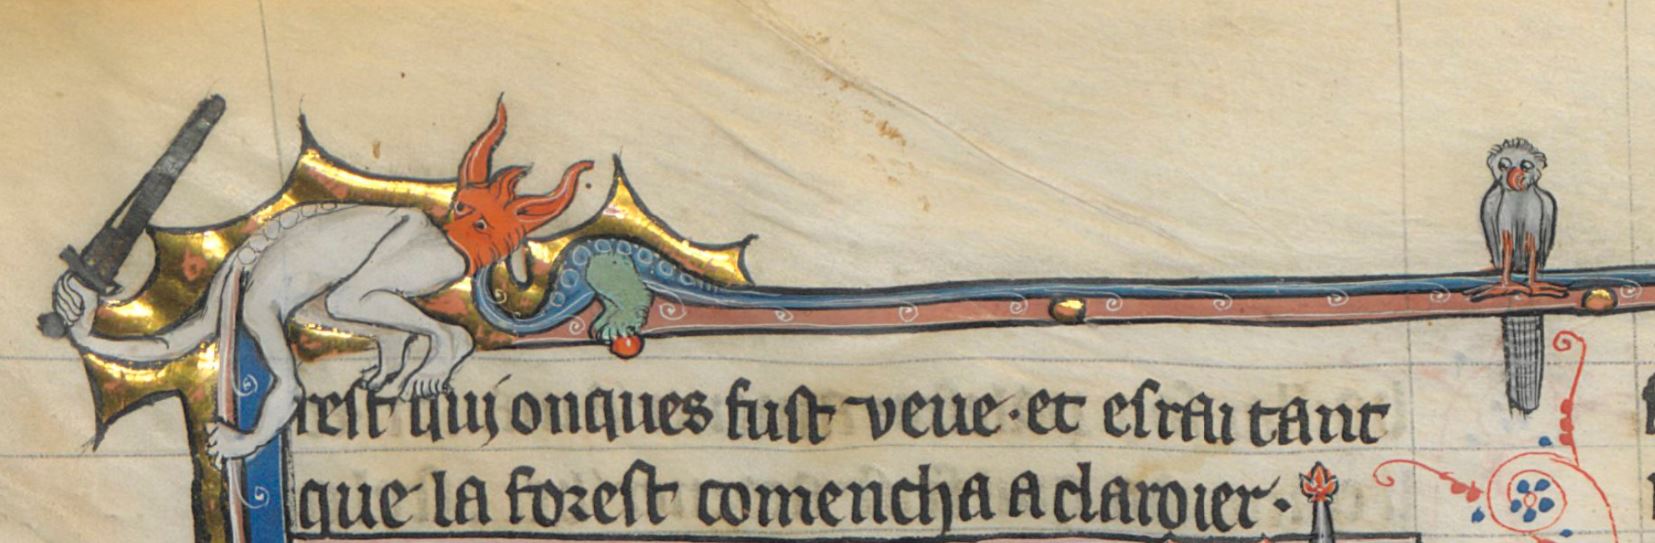 rest qui onques fust veue · et esrai tant
que la forest comencha a claroier ·